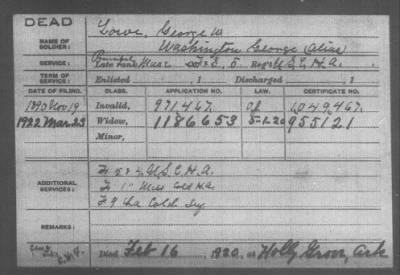 DEAD
NAME OF SOLDIER: Lowe, George W
Washington George (Alias
SERVICE: Late Rank, F & S, 5, Reg't U.S.C.H.A.
TERM OF SERVICE: Enlisted , 1 Discharged , 1
DATE OF FILING. CLASS. APPLICATION NO. LAW. CERTIFICATE NO.
1890 Nov 19 Invalid, 971,467. 1,049,467.
1922 Mar 23 Widow, 1186653 5-1-20 955121
Minor,
ADDITIONAL SERVICES: F. 5 & 4 U.S.C.H.A.
F. 1" Miss Cold H.A.
F. 9 La Cold Inf
REMARKS:
Died Feb 16, 1920, at Holly Grove, Ark